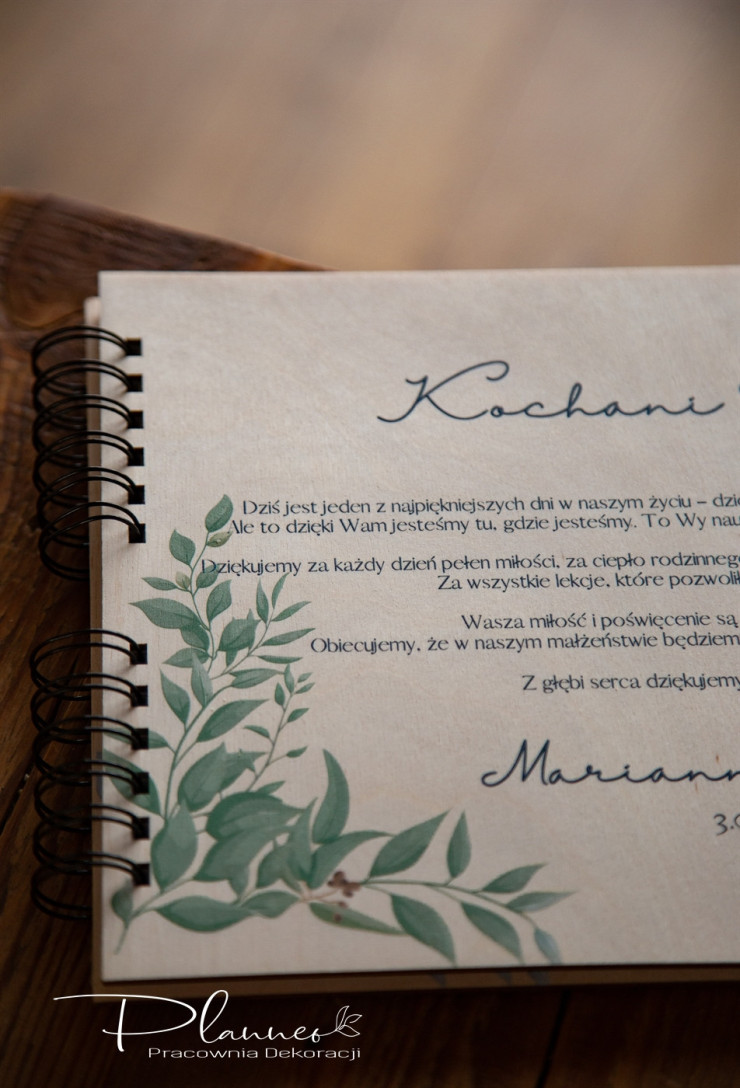 Kochani
Dziś jest jeden z najpiękniejszych dni w naszym życiu –
Ale to dzięki Wam jesteśmy tu, gdzie jesteśmy. To Wy
Dziękujemy za każdy dzień pełen miłości, za ciepło
Za wszystkie lekcje, które
Wasza miłość i poświęcenie są
Obiecujemy, że w naszym małżeństwie
Z głębi serca dziękujemy
Planneo
Pracownia Dekoracji